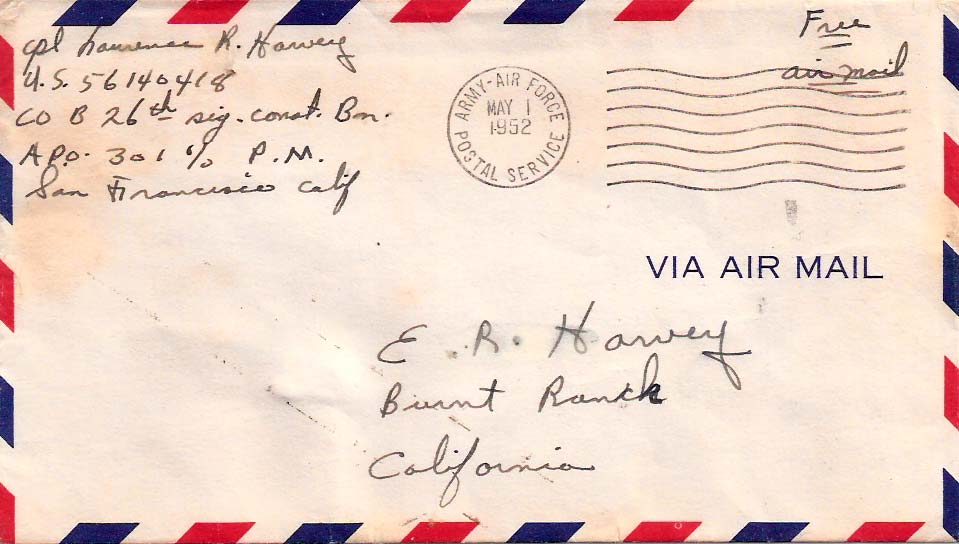 cpl Laurence R. Harvey
U.S. 56140418
CO B 26th sig. const. Bn.
A.P.O. 301 c/o P.M.
San Francisco Calif
ARMY-AIR FORCE
MAY 1
1952
POSTAL SERVICE
Free
air mail
VIA AIR MAIL
E. R. Harvey
Burnt Ranch
California